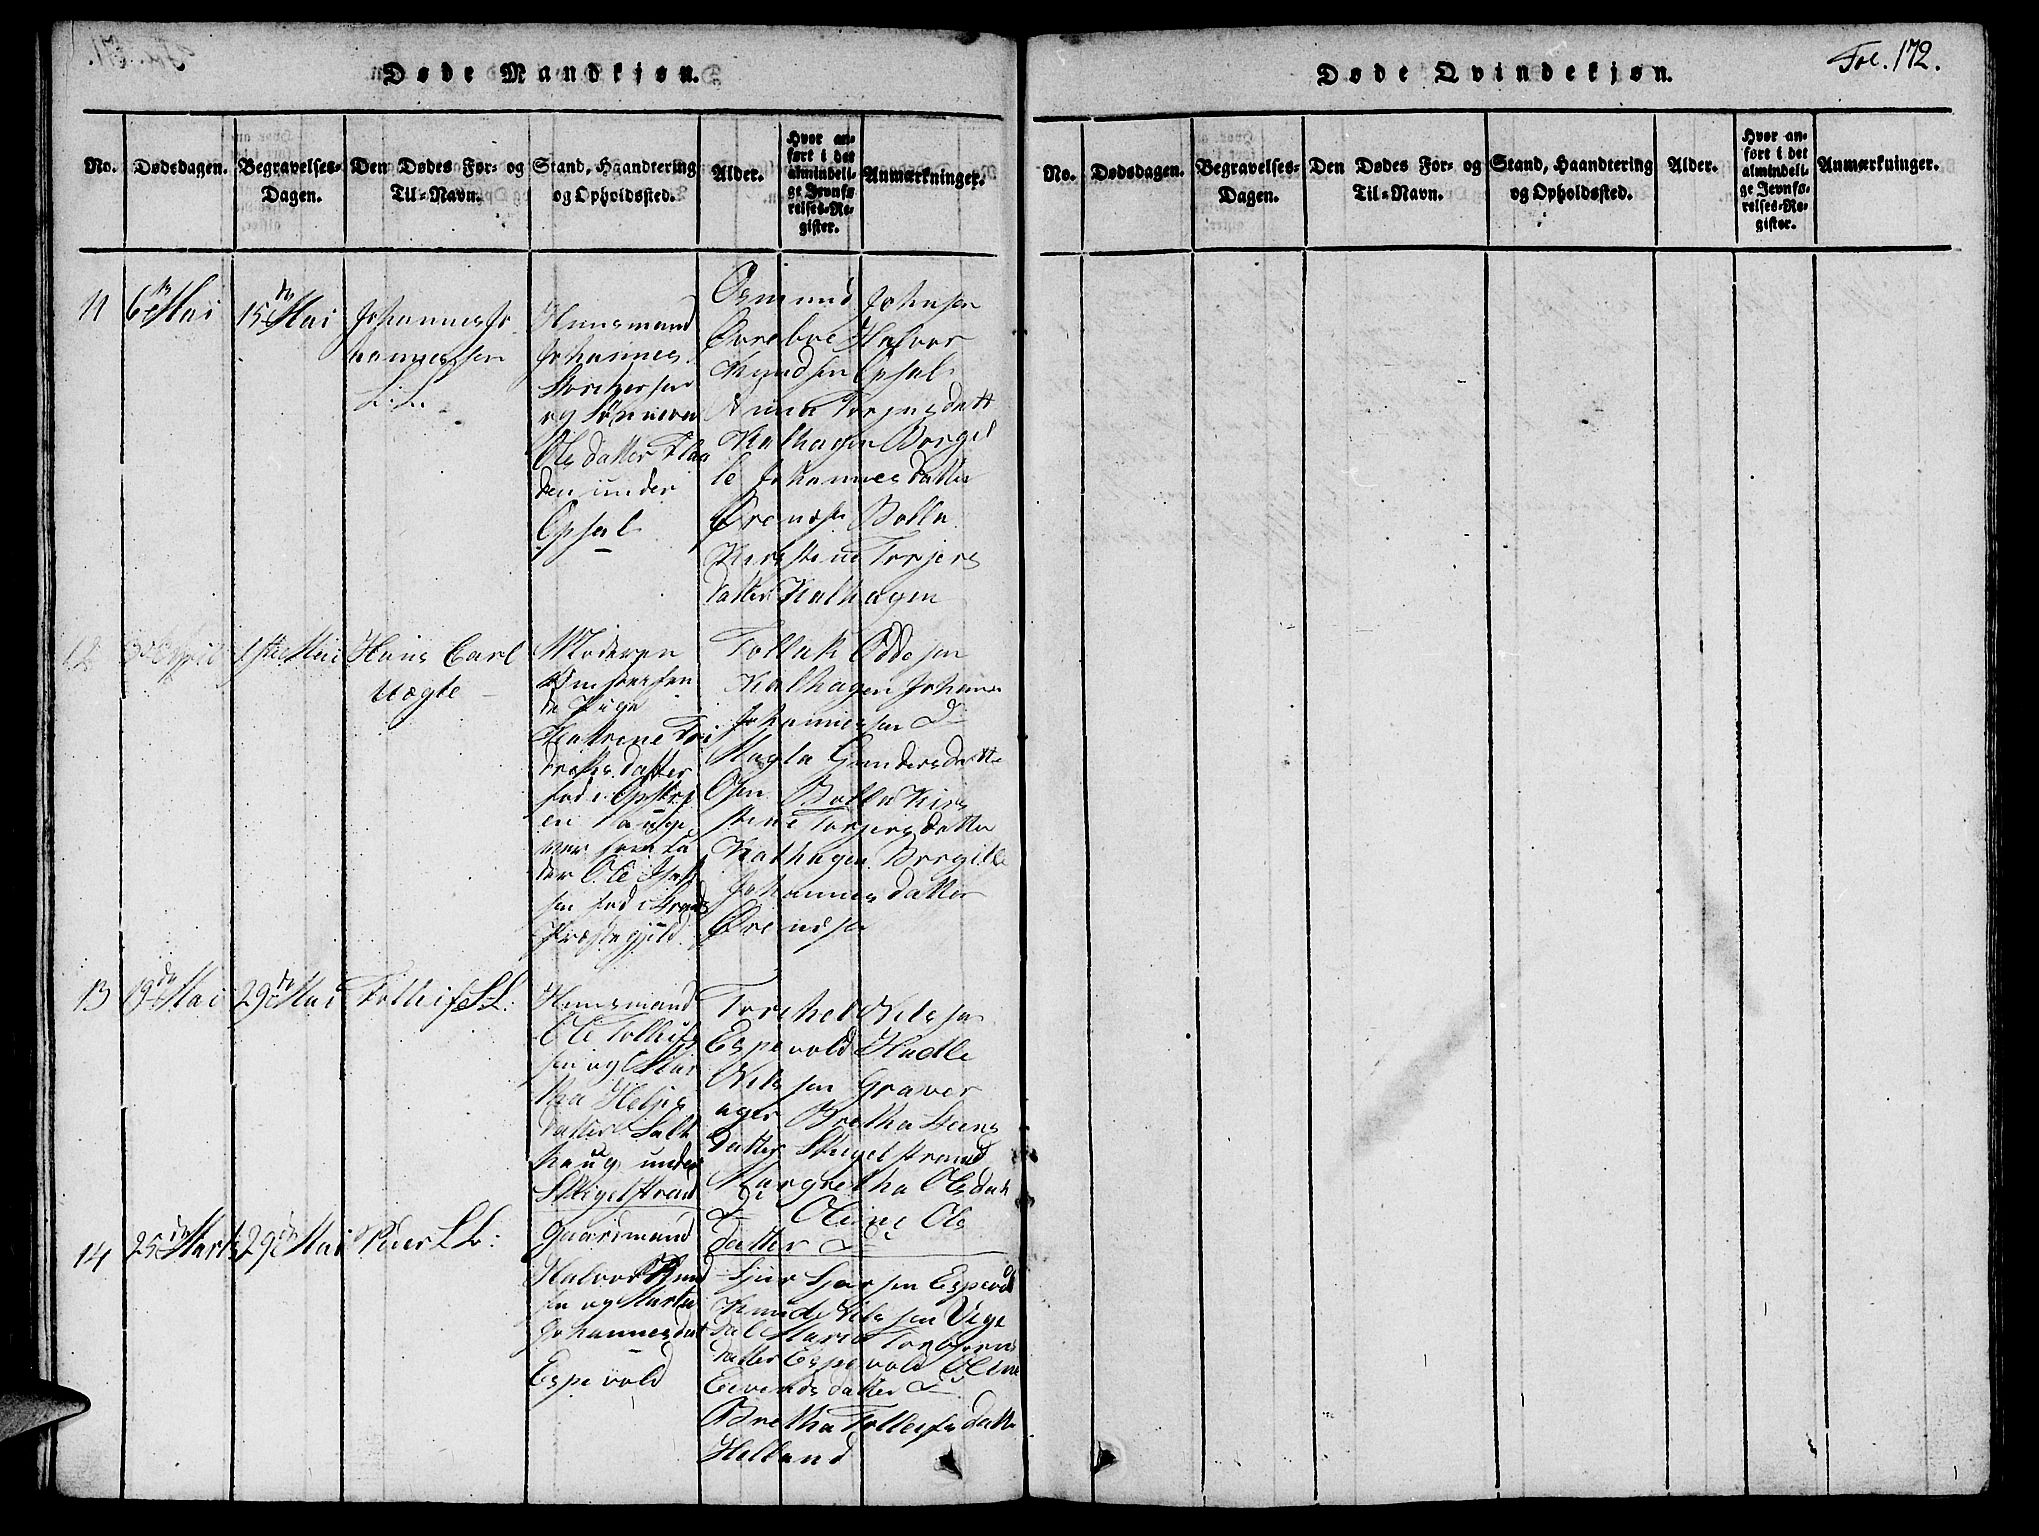 Døde Mandkjøn.
No.
Dødsdagen.
Begravelses-
Dagen.
Den Dødes For- og
Til-Navn.
Stand, Haandtering
og Opholdssted.
Alder.
Hvor an-
ført i det
almindeli-
ge Jevnfø-
relses-Re-
gister.
Anmærkninger.
11
6 Mai
15 Mai
Johannes Jo
hannessen
L: L:
Huusmand
Johannes
og
Olsdatter Flaa
den under
Opsal
Osmund Johnsen
Øvreboe Halvor
Knudsen Opsal
Anna Torjersdatt
Kalhagen Borgil
le Johannesdatter
Bolla
Kirstine Torjers
datter Kalhagen
12
30 April
1ste Mai
Hans Carl
Uægte
Moderen
Pige
Katrine
datter
fød i
en
Ole
sen fød i Strands
Præstegjeld
Tollak Oddesen
Kalhagen Johannes
Johannessen Do
Gundersdatter
Osen Bolla Kirs
tine Torjersdatter
Kalhagen Borgille
Johannesdatter
13
19 Mai
29 Mai
Tolleif L: L:
Huusmand
Ole Tolleifs
sen og Mar
tha Heljes
datter Salt
haug under
Skigelstrand
Torchel Nilsen
Espevold Hadle
Nilssen Graver
ager Bretha Steens
datter Skigelstrand
Margretha Olsdatt
Do Oline Ols
datter Do
14
25 Marts
29 Mai
Peder L: L:
Gaardmand
Halvor Knud
sen og Marta
Johannesdat
Espevold
Sjur Sjursen Espevold
Knud Nilssen Vige
dal Maria Torbjørns
datter Espevold Oline
Eivindsdatter Do
Bretha Tolleifsdatter
Helland
Fol. 172.
Døde Qvindekjøn.
No.
Dødsdagen.
Begravelses-
Dagen.
Den Dødes For- og
Til-Navn.
Stand, Haandtering
og Opholdssted.
Alder.
Hvor an-
ført i det
almindeli-
ge Jevnfø-
relses-Re-
gister.
Anmærkninger.